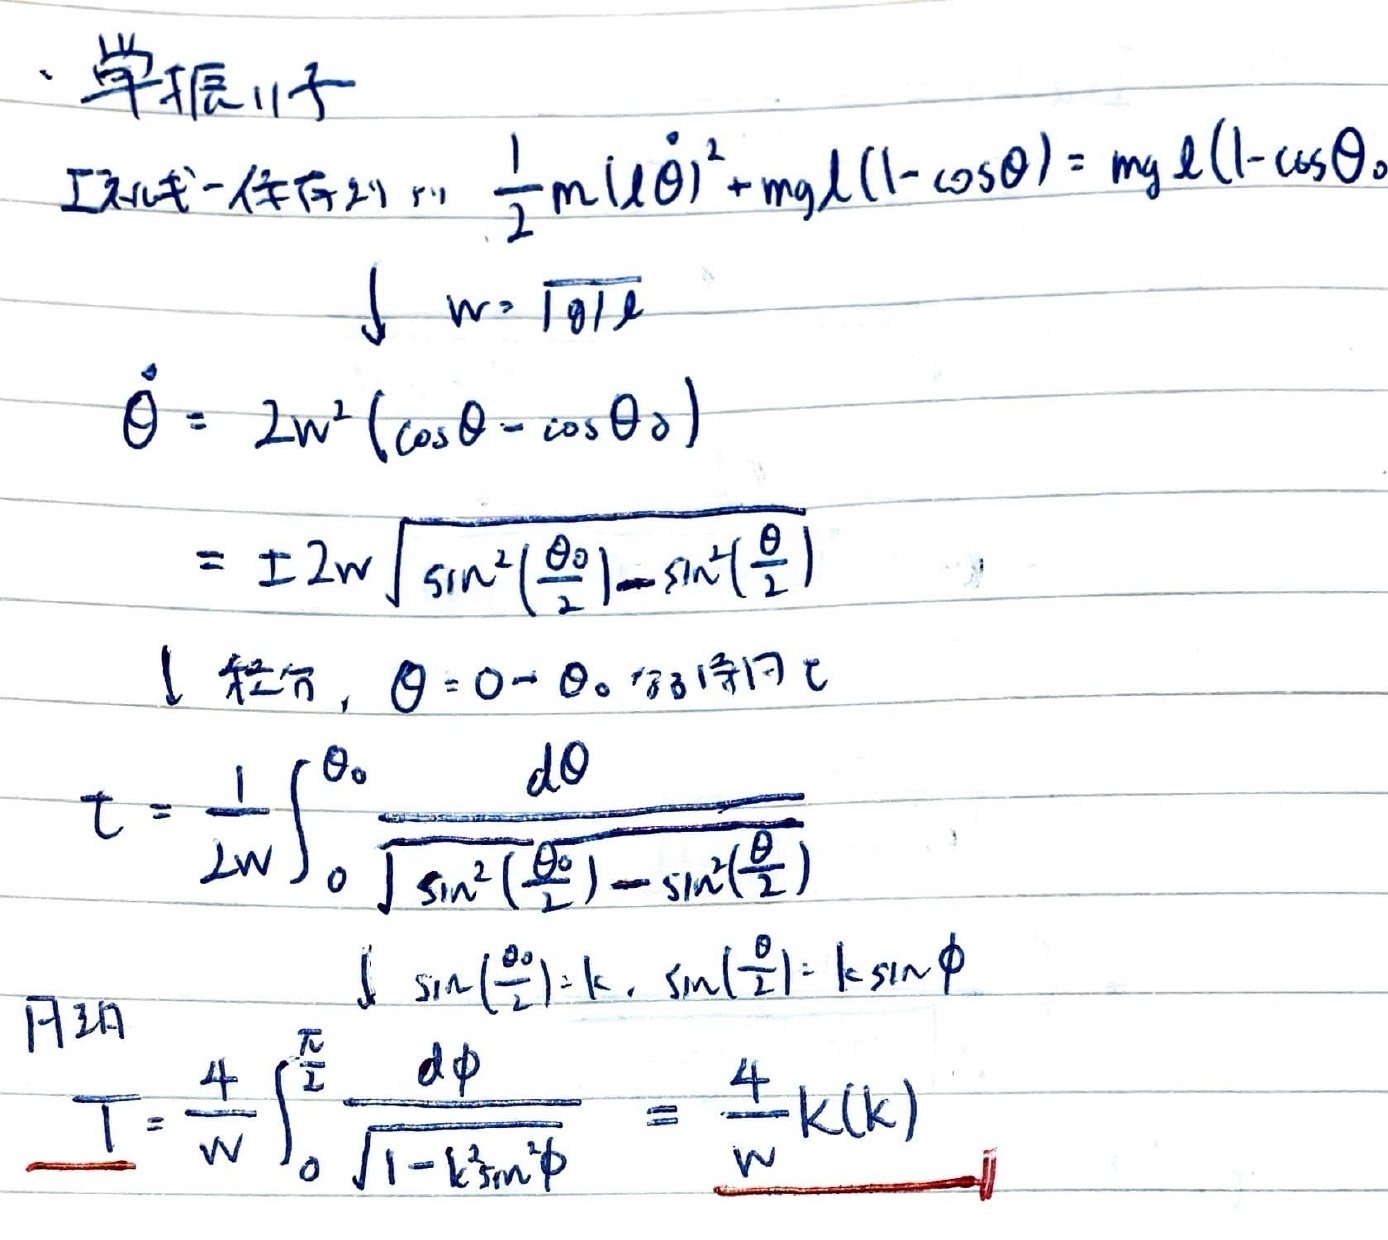 ・単振り子
エネルギー保存より… 1/2 m(lθ̇)² + mgl(1-cosθ) = mgl(1-cosθ₀
↓ w = √g/l
θ̇ = 2w²(cosθ - cosθ₀)
= ±2w √(sin²(θ₀/2) - sin²(θ/2))
↓ 積分, θ=0~θ₀ 時間 t
t = 1/2w ∫₀^θ₀ dθ / √(sin²(θ₀/2) - sin²(θ/2))
↓ sin(θ₀/2) = k, sin(θ/2) = k sinφ
周期
T = 4/w ∫₀^π/2 dφ / √(1-k²sin²φ) = 4/w K(k)